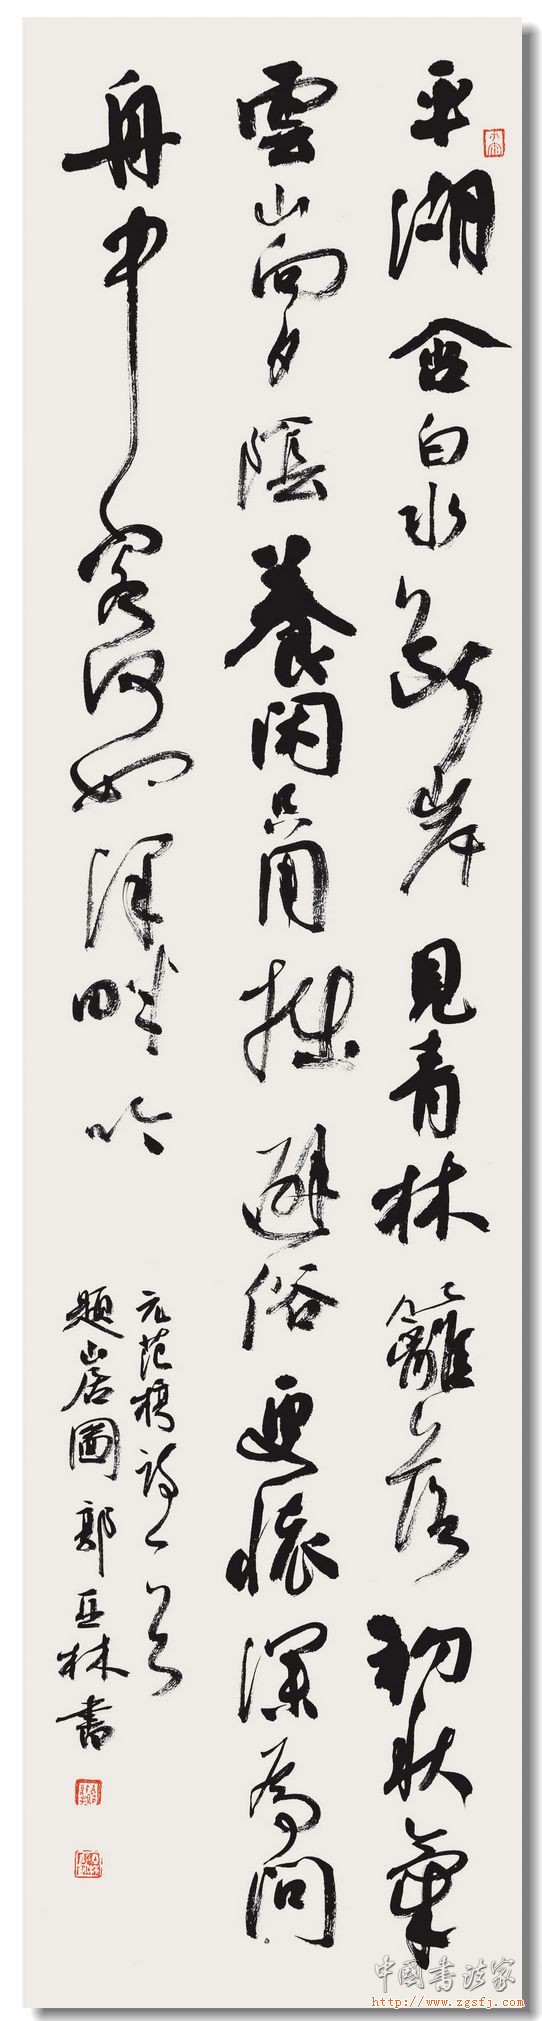 平湖含白水断岸見青林籬落初秋氣
雲山向夕陰養閑甬拙避俗更懷深為問
舟中客何如澤畔吟
元范梈詩一首
題山居圖郭亚林書
中國書法家
http://www.zgsfj.com